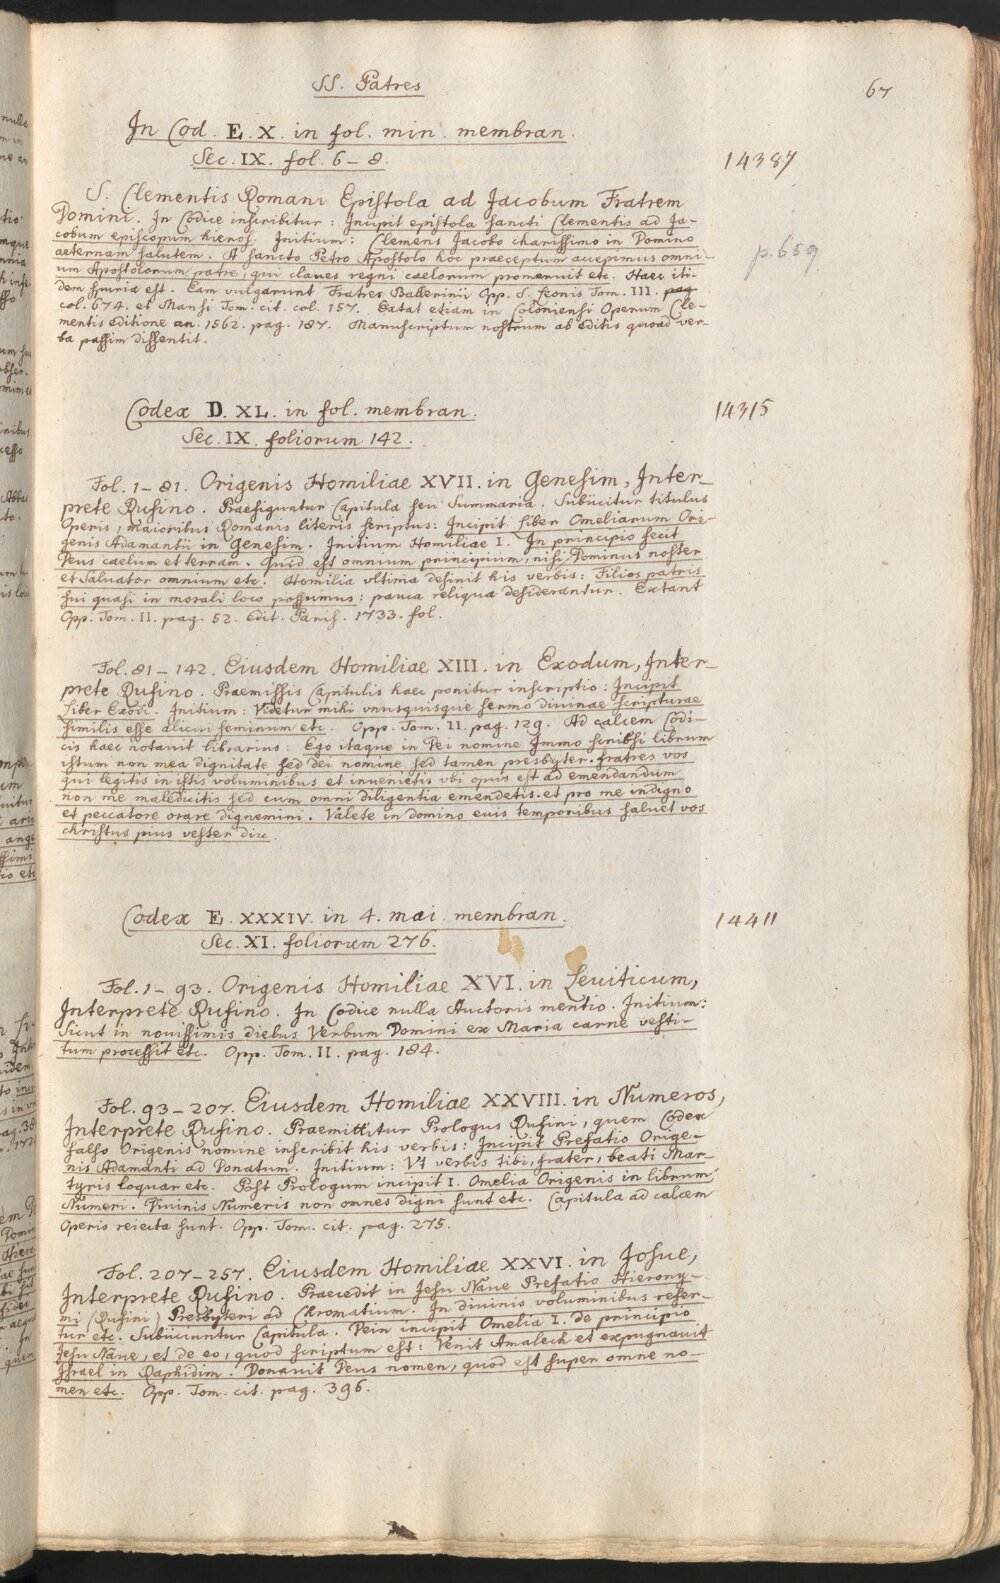 SS. Patres
67
In Cod. E. X. in fol. min. membran.
Sec. IX. fol. 6–8.
14387
S. Clementis Romani Epistola ad Jacobum Fratrem
Domini. In Codice inscribitur: Incipit epistola sancti Clementis ad Ja-
cobum episcopum hieros. Initium: Clemens Jacobo charissimo in Domino
aeternam salutem. A sancto Petro Apostolo hoc praeceptum accepimus omni-
um Apostolorum patre, qui claues regni caelorum promeruit etc. Haec iti-
dem spuria est. Eam vulgarunt Fratres Ballerinii Opp. S. Leonis Tom. III. pag
col. 674. et Mansi Tom. cit. col. 157. Extat etiam in Coloniensi Operum Cle-
mentis editione an. 1562. pag. 187. Manuscriptum nostrum ab editis quoad ver-
ba passim dissentit.
p. 659
Codex D. XL. in fol. membran.
Sec. IX. foliorum 142.
14315
Fol. 1–81. Origenis Homiliae XVII. in Genesim, Inter-
prete Rufino. Praefiguntur Capitula seu Summaria. Subiicitur titulus
Operis, maioribus Romanis literis scriptus: Incipit Liber Omeliarum Ori-
genis Adamantii in Genesim. Initium Homiliae I. In principio fecit
Deus caelum et terram. Quid est omnium principium, nisi Dominus noster
et Saluator omnium etc. Homilia vltima desinit his verbis: Filios patris
sui quasi in morali loco possumus: pauca reliqua desiderantur. Extant
Opp. Tom. II. pag. 52. edit. Paris. 1733. fol.
Fol. 81–142. Eiusdem Homiliae XIII. in Exodum, Inter-
prete Rufino. Praemissis Capitulis haec ponitur inscriptio: Incipit
Liber Exodi. Initium: Videtur mihi vnusquisque sermo diuinae scripturae
similis esse alicui seminum etc. Opp. Tom. II. pag. 129. Ad calcem Codi-
cis haec notauit librarius: Ego itaque in Dei nomine Immo scribsi librum
istum non mea dignitate sed dei nomine sed tamen presbyter. fratres vos
qui legitis in istis voluminibus et inuenietis vbi opus est ad emendandum
non me maledicitis sed cum omni diligentia emendetis. et pro me indigno
et peccatore orare dignemini. Valete in domino euis temporibus saluet vos
christus pius vester diu.
Codex E. XXXIV. in 4. mai. membran.
Sec. XI. foliorum 276.
14411
Fol. 1–93. Origenis Homiliae XVI. in Leuiticum,
Interprete Rufino. In Codice nulla Auctoris mentio. Initium:
Sicut in nouissimis diebus Verbum Domini ex Maria carne vesti-
tum processit etc. Opp. Tom. II. pag. 184.
Fol. 93–207. Eiusdem Homiliae XXVIII. in Numeros,
Interprete Rufino. Praemittitur Prologus Rufini, quem Codex
falso Origenis nomine inscribit his verbis: Incipit Prefatio Orige-
nis Adamanti ad Donatum. Initium: Vt verbis tibi, frater, beati Mar-
tyris loquar etc. Post Prologum incipit I. Omelia Origenis in librum
Numeri. Diuinis Numeris non omnes digni sunt etc. Capitula ad calcem
Operis reiecta sunt. Opp. Tom. cit. pag. 275.
Fol. 207–257. Eiusdem Homiliae XXVI. in Josue,
Interprete Rufino. Praecedit in Jesu Naue Prefatio Hierony-
mi (Rufini) Presbyteri ad Chromatium. In diuinis voluminibus refer-
tur etc. Subiiciuntur Capitula. Dein incipit Omelia I. de principio
Jesu Naue, et de eo, quod scriptum est: Venit Amalech et expugnauit
Israel in Raphidim. Donauit Deus nomen, quod est super omne no-
men etc. Opp. Tom. cit. pag. 396.